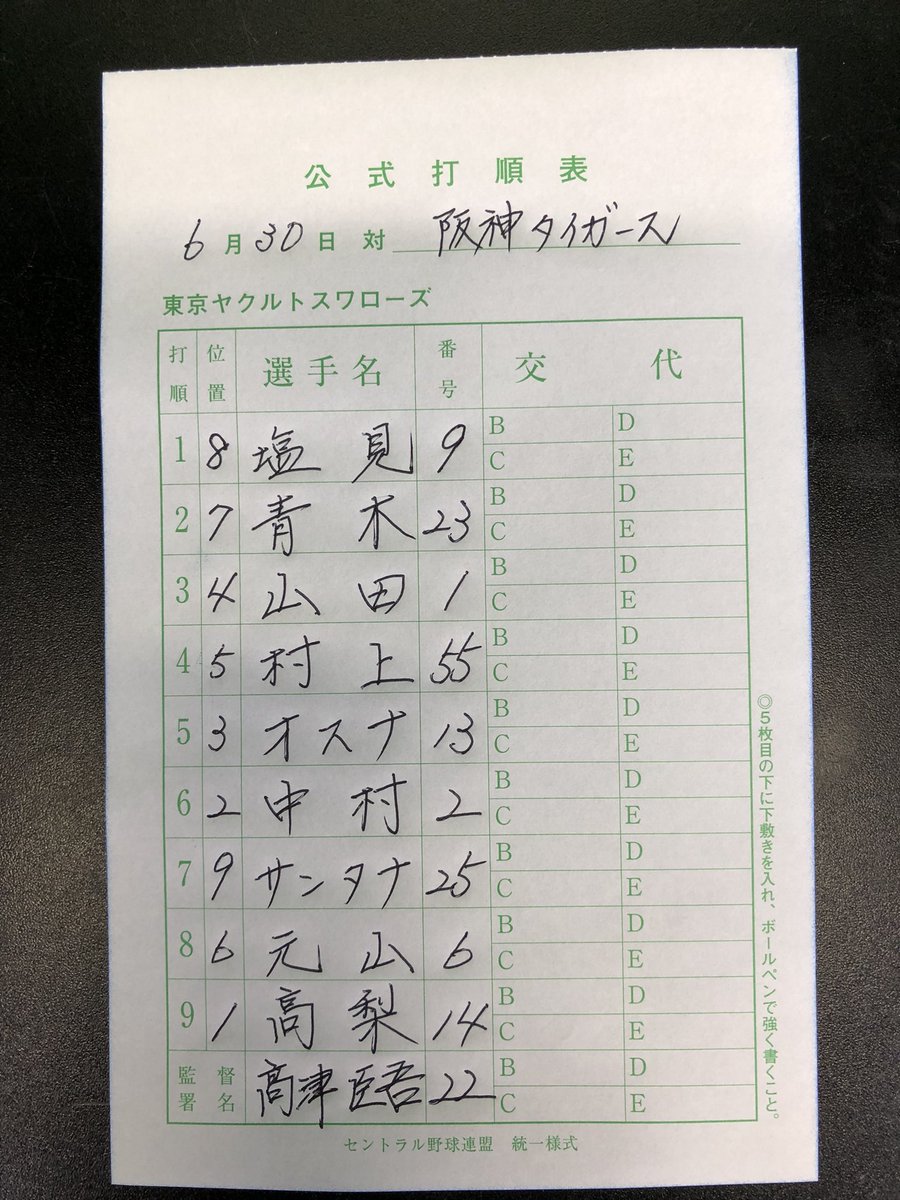 公式打順表
6月30日 対 阪神タイガース
東京ヤクルトスワローズ
打順 位置 選手名 番号 交代
1 8 塩見 9 B D C E
2 7 青木 23 B D C E
3 4 山田 1 B D C E
4 5 村上 55 B D C E
5 3 オスナ 13 B D C E
6 2 中村 2 B D C E
7 9 サンタナ 25 B D C E
8 6 元山 6 B D C E
9 1 高梨 14 B D C E
監督署名 髙津臣吾 22 B D C E
セントラル野球連盟 統一様式
◎5枚目の下に下敷きを入れ、ボールペンで強く書くこと。